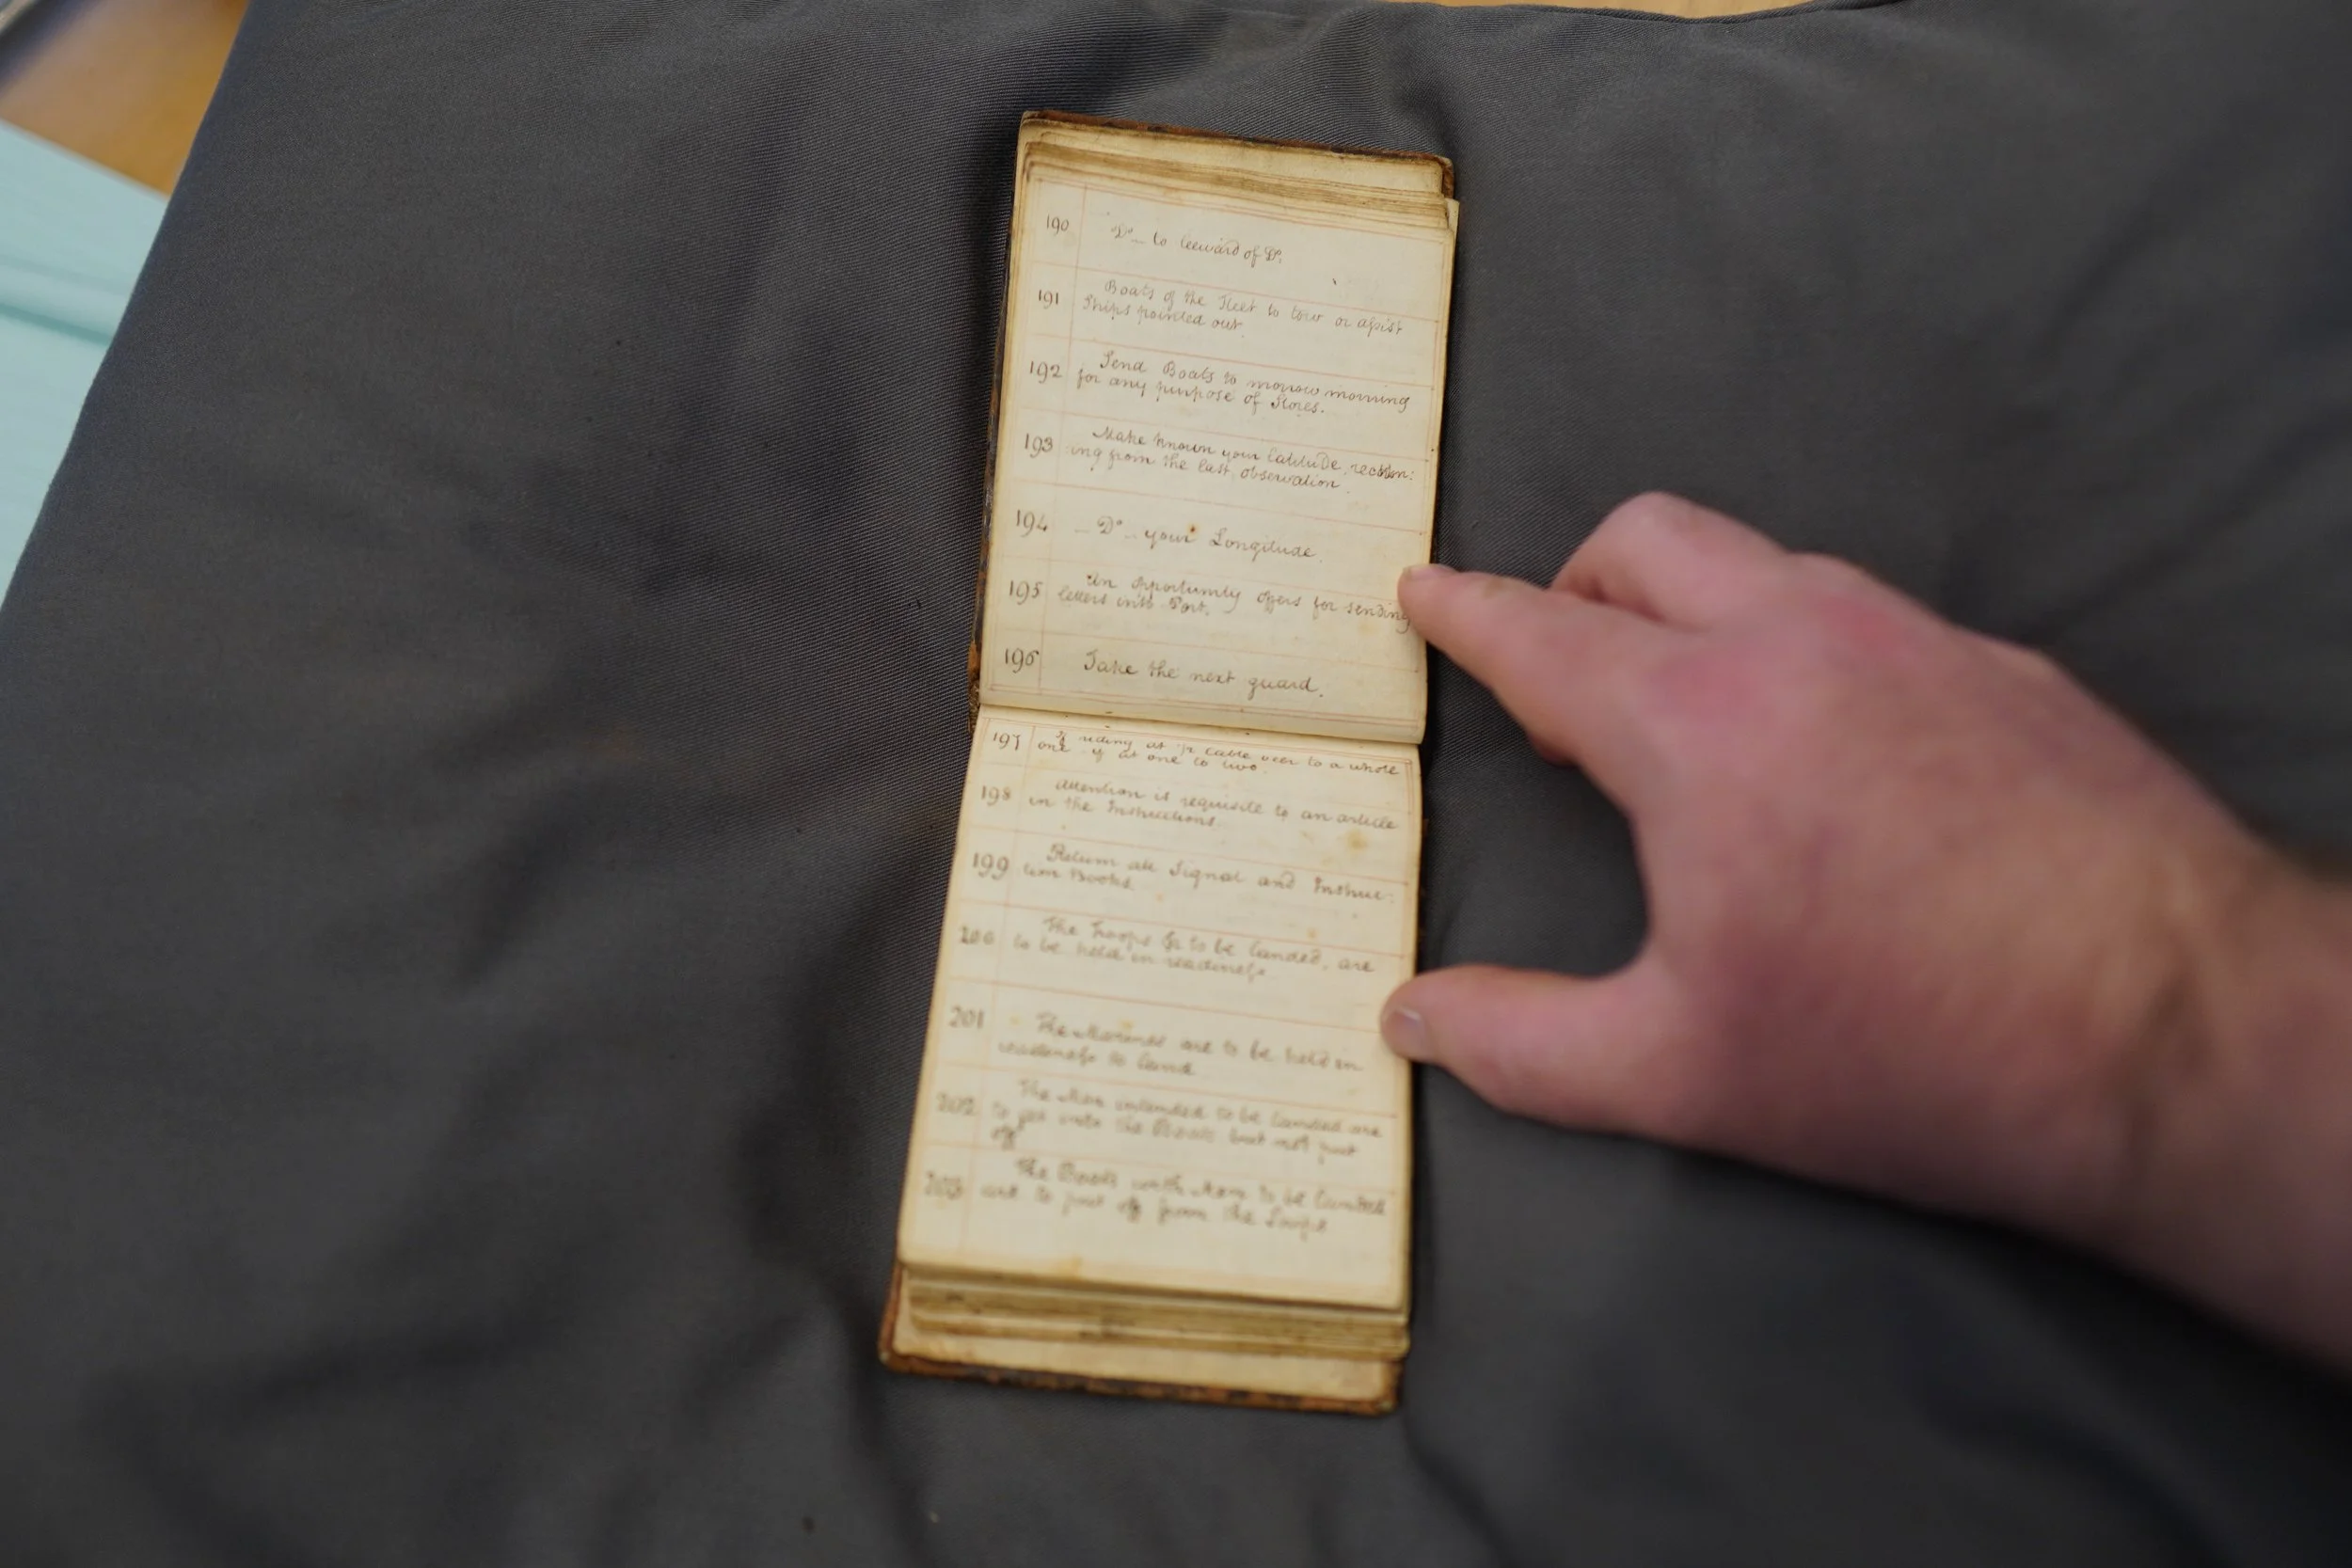 190 Do_ to leeward of Do.
191 Boats of the Fleet to tow or assist
Ships pointed out.
192 Send Boats to morrow morning
for any purpose of Stores.
193 Make known your latitude, reckon:
ing from the last observation.
194 _ Do _ your Longitude.
195 An opportunity offers for sending
letters into Port.
196 Take the next guard.
197 If riding at ½ cable veer to a whole
one if at one to two.
198 Attention is requisite to an article
in the Instructions.
199 Return all Signal and Instruc-
tion Books.
200 The Troops to be landed, are
to be held in readiness
201 The Marines are to be held in
readiness to land
202 The Men intended to be landed are
to get into the Boats but not put
off
203 The Boats with Men to be landed
are to put off from the